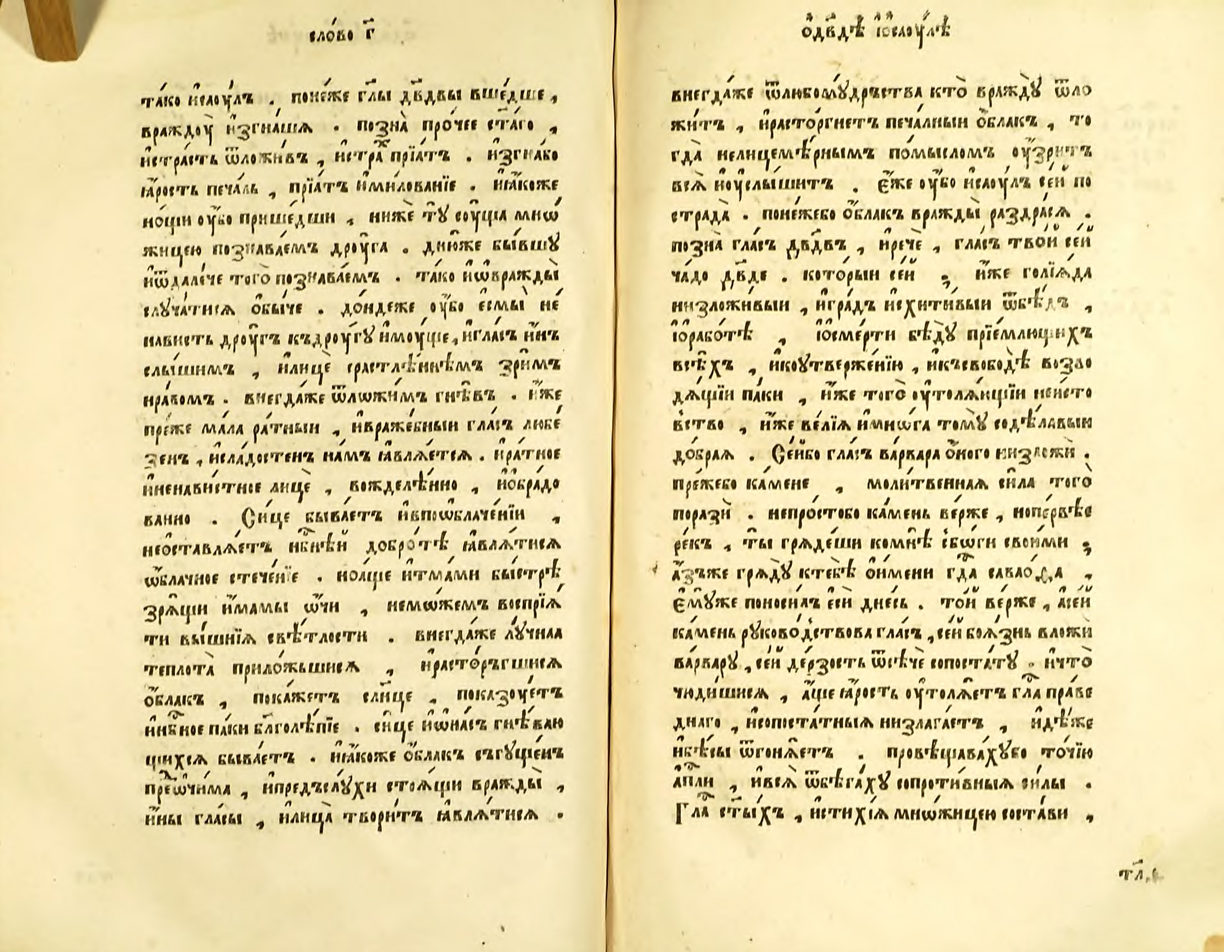 сло́во г҃
та́ко исаоу́лъ . поне́же гл҃ы дв҃двы вше́дше ,
враждоу̀ изгна́шѧ . позна̀ про́чее ста́го ,
и́страсть ѿложи́въ , и́стра прїа́тъ . изгна́бо
ꙗ́рость печа́ль , прїа́тъ и́милова́нїе . ꙗ́коже
но́щи оу́бо прише́дши , нижѐ тꙋ̀ соу́ща мно́ѡ
жицею познава́емъ дроу́га . дню́же бы́вшꙋ
иѿдале́че того̀ познава́емъ . та́ко иѡвражды̀
слꙋча́тисѧ ѡбы́че . до́ндеже оу́бо есмы̀ не́
нависть дроу́гъ къдроу́гꙋ имоу́ще , игла́съ и́нъ
слы́шимъ , илицѐ срастлѣ́ннѣмъ зри́мъ
нра́вомъ . внегда́же ѿлѡжи́мъ гнѣ́въ . и́же
пре́же ма́ла ра́тныи , ивраже́бныи гла́съ любе́
зенъ , исла́достенъ на́мъ ꙗвлѧ́етсѧ . ира́тное
иненави́стное лицѐ , вожделѣ́нно , иѡбра́до
ванно . Си́це быва́етъ ивпоѡблаче́нїи ,
неѡставлѧ́етъ нб҃нѣ́й добро́тѣ ꙗвлѧ́тисѧ
ѡ́блачное стече́нїе . но́аще итма́ми бы́стрѣ
зрѧ́щи и́мамы ѻ́чи , немо́жемъ воспрїѧ́
ти вы́шнїѧ свѣ́тлости . внегда́же лꙋ́чнаа
теплота̀ приложьшисѧ , ирасто́ргшисѧ
ѡ́блакъ , пока́жетъ сл҃нце , показоу́етъ
инб҃ное па́ки бл҃голѣ́пїе . си́це иѡна́съ гнѣ́ваю
щихсѧ быва́етъ . ꙗ́коже ѡ́блакъ съгꙋще́нъ
преѻчи́ма , ипредъслꙋ́хи стоѧ́щи вражды̀ ,
и́ны гла́сы , или́ца твори́тъ ꙗвлѧ́тисѧ .
ѻдв҃дѣ іѡсаоу́лѣ
внегда́же ѿлюбомꙋ́дръства кто̀ враждꙋ̀ ѿло
жи́тъ , ирасто́ргнетъ печа́лныи ѡ́блакъ , то
гда̀ нелицемѣ́рнымъ по́мысломъ оу́зритъ
всѧ̀ иоуслы́шитъ . є́же оу́бо исаоу́лъ се́й по
страда̀ . поне́жебо ѡ́блакъ вражды̀ раздра́сѧ .
позна̀ гла́съ дв҃двъ , иречѐ , гла́съ тво́й се́й
ча́до дв҃де . кото́рыи се́й ; и́же голїа́да
низложи́выи , игра́дъ исхити́выи ѿбѣ́дъ ,
іѡрабо́тѣ , іѡсме́рти бѣ́дꙋ прїе́млющихъ
всѣ́хъ , икоутверже́нїю , икъсвобо́дѣ возво
дѧ́щїи па́ки , и́же того̀ оутолѧ́ющїи неи́сто
вство , и́же ве́лїѧ имно́га томꙋ̀ содѣ́лавыи
до́браѧ . Се́йбо гла́съ ва́рвара ѻ́ного низложѝ .
пре́жебо ка́мене , моли́твеннаѧ си́ла того̀
поразѝ . непро́стобо ка́мень ве́рже , нопе́рвѣе
ре́къ , ты̀ грѧде́ши комнѣ̀ сбо́ги свои́ми ;
а́зъже грѧдꙋ̀ ктебѣ̀ ѻи́мени гд҃а саваѻ́ѳа ,
є҆мꙋ́же поноси́лъ есѝ дне́сь . то́й ве́рже , а́сей
ка́мень рꙋково́дствова гла́съ , се́й боѧ́знь вложѝ
ва́рварꙋ , се́й де́рзость ѿсѣ́че сопоста́тꙋ . ичто̀
чюди́шисѧ , а́ще ꙗ́рость оутолѧ́етъ гл҃а пра́ве
днаго , исопоста́тныѧ низлага́етъ , идѣ́же
ибѣ́сы ѿгонѧ́етъ . провѣщава́хꙋбо то́чїю
ап҃ли , ивсѧ̀ ѿбѣга́хꙋ сопроти́вныѧ си́лы .
Гл҃а ст҃ы́хъ , истихі́ѧ мно́жицею соста́ви ,